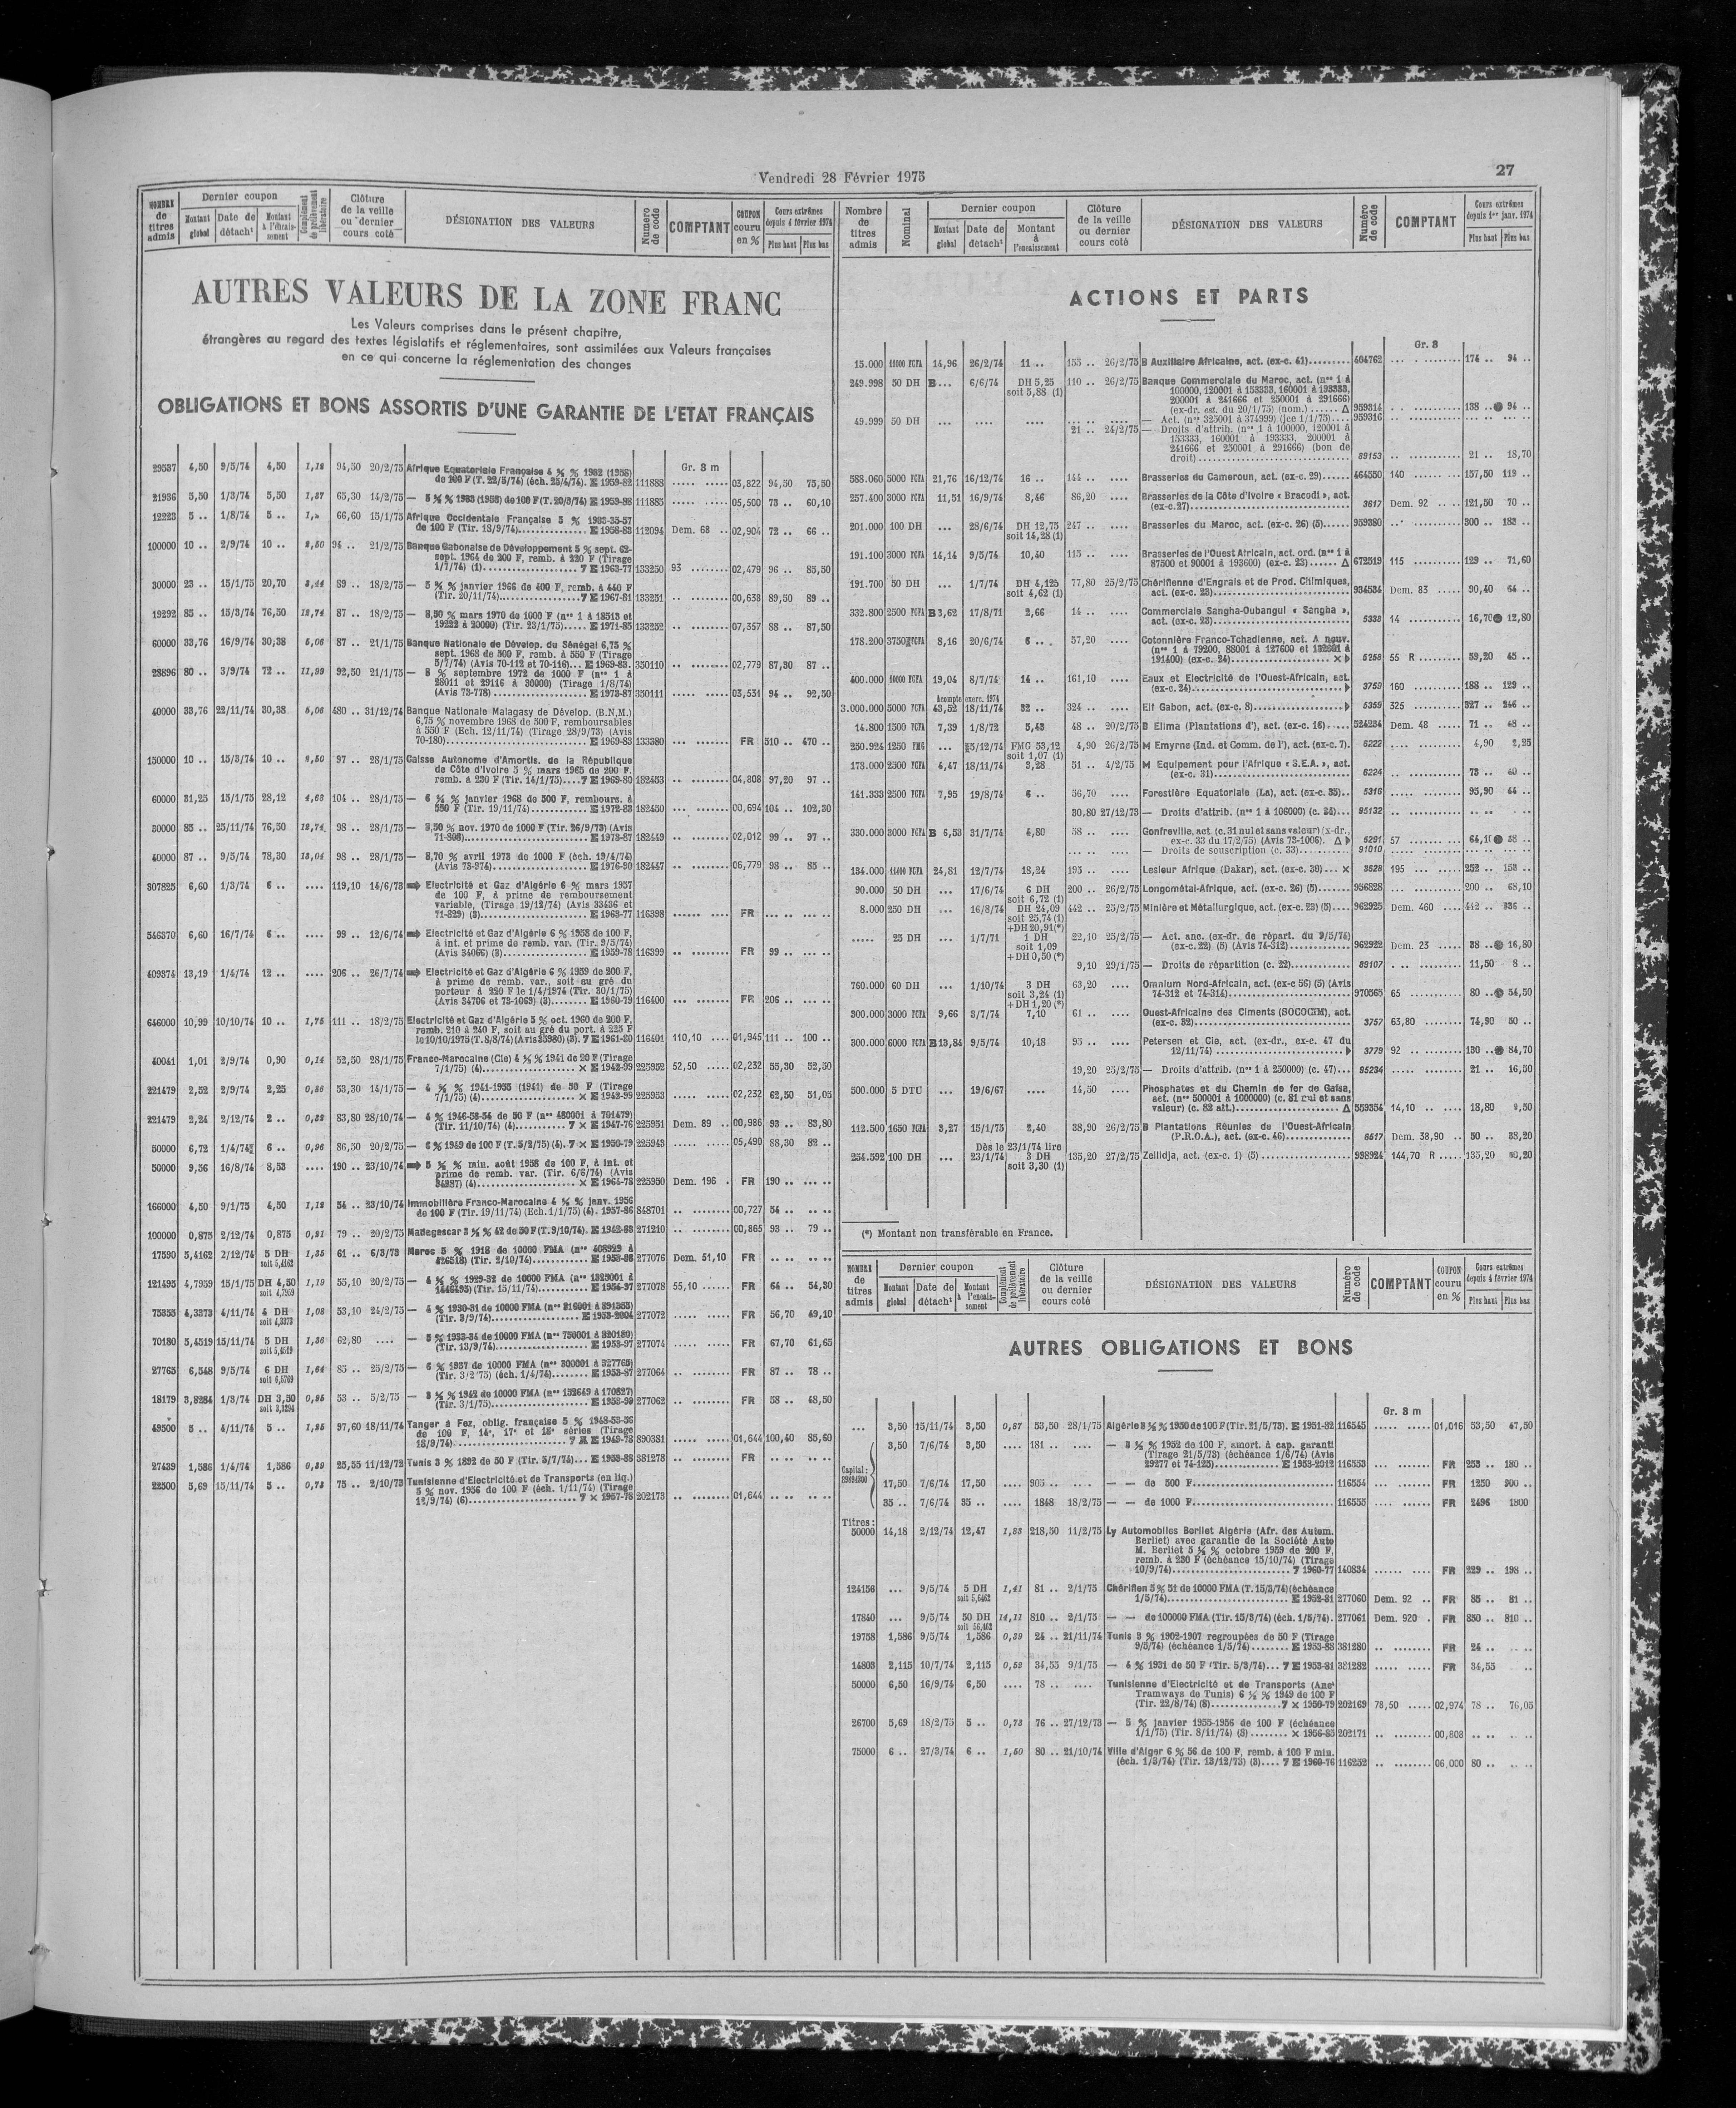 Vendredi 28 Février 1975
27
AUTRES VALEURS DE LA ZONE FRANC
Les Valeurs comprises dans le présent chapitre,
étrangères au regard des textes législatifs et réglementaires, sont assimilées aux Valeurs françaises
en ce qui concerne la réglementation des changes
OBLIGATIONS ET BONS ASSORTIS D'UNE GARANTIE DE L'ETAT FRANÇAIS
NOMBRE de titres admis
Dernier coupon
Montant global
Date de détach¹
Montant à l'encaissement
Complément de prélèvement libératoire
Clôture de la veille ou dernier cours coté
DÉSIGNATION DES VALEURS
Numéro de code
COMPTANT
COUPON couru en %
Cours extrêmes depuis 4 février 1974
Plus haut
Plus bas
Gr. 8 m
21936 5,50 1/3/74 5,50
111885 05,500 73 .. 60,10
12223 5 .. 1/8/74 5 .. 66,60 15/1/75 Afrique Occidentale Française
112094 Dem. 68 .. 02,904 72 .. 66 ..
100000 10 .. 2/9/74 10 .. 94 .. 21/2/75 Banque Gabonaise de Développement
133250 93 02,479 96 .. 85,50
30000 23 .. 15/1/75 20,70 89 .. 18/2/75 — janvier 1966 de 400 F, remb. à 440 F
(Tir. 20/11/74) 7 E 1967-81 133251 00,638 89,50 89 ..
19292 85 .. 15/3/74 76,50 87 .. 18/2/75 — 8,50 % mars 1970 de 1000 F
07,357 88 .. 87,50
60000 33,76 16/9/74 30,38 87 .. 21/1/75 Banque Nationale de Dévelop. du Sénégal 6,75 %
350110 02,779 87,30 87 ..
28896 80 .. 3/9/74 72 .. 11,99 92,50 21/1/75 — 8 % septembre 1972 de 1000 F
(Avis 73-778) E 1973-87 350111 03,531 94 .. 92,50
40000 33,76 22/11/74 30,38 480 .. 31/12/74 Banque Nationale Malagasy de Dévelop. (B.N.M.)
6,75 % novembre 1968 de 500 F, remboursables
à 550 F (Ech. 12/11/74) (Tirage 28/9/73) (Avis
70-180) E 1969-83 133380 FR 510 .. 470 ..
150000 10 .. 15/3/74 10 .. 97 .. 28/1/75 Caisse Autonome d'Amortis. de la République
de Côte d'Ivoire 5 % mars 1965 de 200 F.
remb. à 230 F (Tir. 14/1/75) 7 E 1969-80 182453 04,808 97,20 97 ..
60000 31,25 15/1/75 28,12 104 .. 28/1/75
182450 00,694 104 .. 102,30
25/11/74 76,50 98 .. 28/1/75 — 8,50 % nov. 1970 de 1000 F (Tir. 26/9/73) (Avis
182449 02,012 99 .. 97 ..
40000 87 .. 9/5/74 78,30 98 .. 28/1/75 — 8,70 % avril 1973 de 1000 F (éch. 19/4/74)
(Avis 73-974) E 1976-90 182447 06,779 98 .. 85 ..
307825 6,60 1/3/74 6 .. 119,10 14/6/73 Electricité et Gaz d'Algérie 6 % mars 1957
de 100 F, à prime de remboursement
variable, (Tirage 19/12/74)
71-829) (3) E 1963-77 116398 FR
546370 6,60 16/7/74 6 .. 99 .. 12/6/74 Electricité et Gaz d'Algérie 6 % 1958 de 100 F,
à int. et prime de remb. var. (Tir. 9/5/74)
(Avis 34066) (3) E 1959-78 116399 FR 99 ..
409374 13,19 1/4/74 12 .. 206 .. 26/7/74 Electricité et Gaz d'Algérie 6 % 1959 de 200 F,
à prime de remb. var., soit au gré du
porteur à 220 F le 1/4/1974 (Tir. 30/1/75)
(Avis 34706 et 73-1063) (3) E 1960-79 116400 FR 206 ..
646000 10,99 10/10/74 10 .. 111 .. 18/2/75 Electricité et Gaz d'Algérie 5 % oct. 1960 de 200 F,
remb. 210 à 240 F, soit au gré du port. à 225 F
116401 110,10 01,945 111 .. 100 ..
40041 1,01 2/9/74 0,90 0,14 52,50 28/1/75 Franco-Marocaine (Cie)
7/1/75) (4) × E 1942-99 225952 52,50 02,232 55,30 52,50
221479 2,52 2/9/74 2,25 53,30 14/1/75
7/1/75) (4) × E 1942-99 225953 02,232 62,50 51,05
221479 2,24 2/12/74 2 .. 83,80 28/10/74
(Tir. 11/10/74) (4) 7 × E 1947-76 225951 Dem. 89 .. 00,986 93 .. 83,80
50000 6,72 6 .. 0,96 86,50 20/2/75 — 6 % 1949 de 100 F (T. 5/2/75) (4). 7 × E 1950-79 225943 05,490 88,30 82 ..
50000 9,56 16/8/74 190 .. 23/10/74
prime de remb. var. (Tir. 6/6/74) (Avis
× E 1964-78 225950 Dem. 196 . FR 190 ..
166000 4,50 9/1/75 4,50 54 .. 23/10/74 Immobilière Franco-Marocaine
848701 00,727 54 ..
100000 0,875 2/12/74 0,875 79 .. 20/2/75 Madagascar
271210 00,865 93 .. 79 ..
17590 5,4162 2/12/74 5 DH 61 .. 6/3/73 Maroc 5 % 1918 de 10000 FMA
277076 Dem. 51,10 FR
121495 4,7959 15/1/75 DH 4,50 1,19 55,10 20/2/75
277078 55,10 FR 64 .. 54,30
75355 4,3373 4/11/74 4 DH 1,08 53,10 24/2/75
(Tir. 3/9/74) E 1953-2004 277072 FR 56,70 49,10
70180 5,4519 15/11/74 5 DH 62,80
(Tir. 13/9/74) E 1953-97 277074 FR 67,70 61,65
27765 6,548 9/5/74 6 DH 85 .. 25/2/75 — 6 % 1937 de 10000 FMA
277064 FR 87 .. 78 ..
18179 3,8284 1/3/74 DH 3,50 53 .. 5/2/75
(Tir. 3/1/75) 277062 FR 58 .. 48,50
49500 5 .. 4/11/74 5 .. 97,60 18/11/74 Tanger à Fez, oblig. française 5 %
890381 01,644 100,40 85,60
27439 1,586 1/4/74 1,586 25,55 11/12/72 Tunis 3 % 1892 de 50 F (Tir. 5/7/74) 381278 FR
22500 5,69 15/11/74 5 .. 0,73 75 .. 2/10/73 Tunisienne d'Electricité et de Transports (en liq.)
5 % nov. 1956 de 100 F (éch. 1/11/74) (Tirage
12/9/74) (6) 7 × 1957-78 202173 01,644
Nombre de titres admis
Nominal
Dernier coupon
Montant global
Date de détach¹
Montant à l'encaissement
Clôture de la veille ou dernier cours coté
DÉSIGNATION DES VALEURS
Numéro de code
COMPTANT
Cours extrêmes depuis 1er janv. 1974
Plus haut
Plus bas
ACTIONS ET PARTS
Gr. 8
15.000 14,96 26/2/74 11 .. 26/2/75 B Auxiliaire Africaine, act. (ex-c. 41) 404762 174 .. 94 ..
249.998 50 DH B ... 6/6/74 DH 5,25 110 .. 26/2/75 Banque Commerciale du Maroc, act. (nos 1 à
soit 5,88 (1) 100000, 120001 à 153333, 160001 à 193333,
200001 à 241666 et 250001 à 291666)
(ex-dr. est. du 20/1/75) (nom.) Δ 959314 138 .. 94 ..
49.999 50 DH — Act. (nos 325001 à 374999) (jce 1/1/75) 959316
21 .. 24/2/75 — Droits d'attrib. (nos 1 à 100000, 120001 à
153333, 160001 à 193333, 200001 à
241666 et 250001 à 291666) (bon de
droit) 89153 21 .. 18,70
588.060 5000 FCFA 21,76 16/12/74 16 .. 144 .. Brasseries du Cameroun, act. (ex-c. 29) 464550 140 157,50 119 ..
257.400 3000 FCFA 11,51 16/9/74 8,46 86,20 Brasseries de la Côte d'Ivoire « Bracodi », act.
(ex-c.27) 3617 Dem. 92 121,50 70 ..
201.000 100 DH ... 28/6/74 DH 12,75 247 .. Brasseries du Maroc, act. (ex-c. 26) (5) 959380 300 .. 183 ..
soit 14,28 (1)
191.100 3000 FCFA 14,14 9/5/74 10,40 115 .. Brasseries de l'Ouest Africain, act. ord. (nos 1 à
87500 et 90001 à 193600) (ex-c. 23) Δ 672519 115 129 .. 71,60
191.700 50 DH ... 1/7/74 DH 4,125 77,80 25/2/75 Chérifienne d'Engrais et de Prod. Chimiques,
soit 4,62 (1) act. (ex-c. 23) 934534 Dem. 83 90,40 64 ..
332.800 2500 FCFA B 3,62 17/8/71 2,66 14 .. Commerciale Sangha-Oubangui « Sangha »,
act. (ex-c. 23) 5338 14 16,70 12,80
178.200 8,16 20/6/74 57,20 Cotonnière Franco-Tchadienne, act. A nouv.
5258 55 R 59,20 45 ..
400.000 10000 FCFA 19,04 8/7/74 14 .. 161,10 Eaux et Electricité de l'Ouest-Africain, act.
(ex-c. 24) 3759 160 188 .. 129 ..
Acompte exerc. 1974
3.000.000 5000 FCFA 43,52 18/11/74 32 .. 324 .. Elf Gabon, act. (ex-c. 8) 5359 325 327 .. 246 ..
14.800 1500 FCFA 7,39 1/8/72 5,43 48 .. 20/2/75 B Elima (Plantations d'), act. (ex-c. 16) 524234 Dem. 48 71 .. 48 ..
250.924 1250 FMG FMG 53,12 4,90 26/2/75 M Emyrne (Ind. et Comm. de l'), act. (ex-c. 7). 6222 4,90 2,25
soit 1,07 (1)
178.000 2500 FCFA 4,47 18/11/74 3,28 51 .. 4/2/75 M Equipement pour l'Afrique « S.E.A. », act.
(ex-c. 31) 6224 73 .. 40 ..
141.333 2500 FCFA 7,95 19/8/74 56,70 Forestière Equatoriale (La), act. (ex-c. 35) 5316 95,90 44 ..
30,80 27/12/73 — Droits d'attrib. 95132
330.000 3000 FCFA B 6,53 31/7/74 4,80 58 .. Gonfreville, act. (c. 31 nul et sans valeur) (x-dr.,
ex-c. 33 du 17/2/75) (Avis 73-1006). Δ 5291 57 58 ..
— Droits de souscription (c. 33) 91010
134.000 24,81 12/7/74 18,24 195 .. Lesieur Afrique (Dakar), act. (ex-c. 39) × 3628 195 252 .. 153 ..
90.000 50 DH ... 17/6/74 6 DH 200 .. 26/2/75 Longométal-Afrique, act. (ex-c. 26) (5) 956828 200 .. 68,10
soit 6,72 (1)
8.000 250 DH ... 16/8/74 DH 24,09 442 .. 25/2/75 Minière et Métallurgique, act. (ex-c. 23) (5) 962925 Dem. 460 442 ..
soit 25,74 (1)
+DH 20,91(*)
25 DH ... 1/7/71 1 DH 22,10 25/2/75 — Act. anc. (ex-dr. de répart. du 9/5/74)
soit 1,09 (ex-c. 22) (5) (Avis 74-312) 962922 Dem. 23 38 .. 16,80
+DH 0,50 (*)
9,10 29/1/75 — Droits de répartition (c. 22) 89107 11,50 8 ..
760.000 60 DH ... 1/10/74 3 DH 63,20 Omnium Nord-Africain, act. (ex-c 56) (5) (Avis
soit 3,24 (1) 74-312 et 74-314) 970565 65 80 .. 54,50
+DH 1,20 (*)
300.000 3000 FCFA 9,66 3/7/74 7,10 61 .. Ouest-Africaine des Ciments (SOCOCIM), act.
(ex-c. 32) 3757 63,80 74,90 50 ..
300.000 6000 FCFA B 13,84 9/5/74 10,18 95 .. Petersen et Cie, act. (ex-dr., ex-c. 47 du
12/11/74) 3779 92 130 .. 84,70
19,20 25/2/75 — Droits d'attrib. (nos 1 à 250000) (c. 47) 95234 21 .. 16,50
500.000 5 DTU ... 19/6/67 14,50 Phosphates et du Chemin de fer de Gafsa,
act. (nos 500001 à 1000000) (c. 81 nul et sans
valeur) (c. 82 att.) Δ 559354 14,10 18,80
112.500 1650 FCFA 3,27 15/1/75 2,40 38,90 26/2/75 B Plantations Réunies de l'Ouest-Africain
(P.R.O.A.), act. (ex-c. 46) 6617 Dem. 38,90 50 .. 38,20
Dès le 23/1/74 lire
254.592 100 DH ... 23/1/74 3 DH 135,20 27/2/75 Zellidja, act. (ex-c. 1) (5) 998924 144,70 R 135,20
soit 3,30 (1)
(*) Montant non transférable en France.
NOMBRE de titres admis
Dernier coupon
Montant global
Date de détach¹
Montant à l'encaissement
Complément de prélèvement libératoire
Clôture de la veille ou dernier cours coté
DÉSIGNATION DES VALEURS
Numéro de code
COMPTANT
COUPON couru en %
Cours extrêmes depuis 4 février 1974
Plus haut
Plus bas
AUTRES OBLIGATIONS ET BONS
Gr. 8 m
... 3,50 15/11/74 3,50 0,87 53,50 28/1/75 Algérie
116545 01,016 53,50 47,50
Capital :
3,50 7/6/74 3,50 181 .. — 3 ½ % 1952 de 100 F, amort. à cap. garanti
(Tirage 21/5/73) (échéance 1/6/74) (Avis
29277 et 74-125) E 1953-2012 116553 FR 253 .. 180 ..
17,50 7/6/74 17,50 905 .. — — de 500 F 116554 FR 1250 900 ..
35 .. 7/6/74 35 .. 1848 18/2/75 — — de 1000 F 116555 FR 2496 1800
Titres :
50000 14,18 2/12/74 12,47 218,50 11/2/75 Ly Automobiles Berliet Algérie (Afr. des Autom.
Berliet) avec garantie de la Société Auto
M. Berliet 5 ½ % octobre 1959 de 200 F,
remb. à 230 F (échéance 15/10/74) (Tirage
10/9/74) 7 1960-77 140834 FR 229 .. 198 ..
124156 ... 9/5/74 5 DH 1,41 81 .. 2/1/75 Chérifien 5 % 51 de 10000 FMA (T. 15/3/74) (échéance
1/5/74) E 1952-81 277060 Dem. 92 .. FR 85 .. 81 ..
17840 ... 9/5/74 50 DH 14,11 810 .. 2/1/75 — — de 100000 FMA (Tir. 15/3/74) (éch. 1/5/74). 277061 Dem. 920 . FR 850 .. 810 ..
19758 1,586 9/5/74 1,586 0,39 24 .. 21/11/74 Tunis 3 % 1902-1907 regroupées de 50 F (Tirage
9/5/74) (échéance 1/5/74) E 1953-88 381280 FR 24 ..
14803 2,115 10/7/74 2,115 34,55 9/1/75 — 4 % 1931 de 50 F (Tir. 5/3/74) 7 E 1953-81 381282 FR 34,55
50000 6,50 16/9/74 6,50 78 .. Tunisienne d'Electricité et de Transports (Anct
Tramways de Tunis) 6 ½ % 1949 de 100 F
(Tir. 22/8/74) (8) 7 × 1950-79 202169 78,50 02,974 78 .. 76,05
26700 5,69 18/2/75 5 .. 0,73 76 .. 27/12/73 — 5 % janvier 1955-1956 de 100 F (échéance
1/1/75) (Tir. 8/11/74) (3) × 1956-85 202171 00,808
75000 6 .. 27/3/74 6 .. 80 .. 21/10/74 Ville d'Alger 6 % 56 de 100 F, remb. à 100 F min.
(éch. 1/3/74) (Tir. 13/12/73) (3) 7 E 1960-76 116252 06,000 80 ..